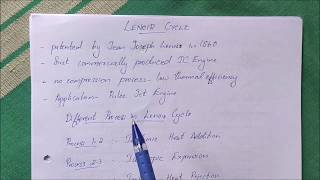 LENOIR CYCLE
- patented by Jean Joseph Lenoir in 1860
- first commercially produced IC Engine
- no compression process - low thermal efficiency
- Application - Pulse Jet Engine
Different Process in Lenoir Cycle
Process 1-2 : Heat Addition
Process 2-3 : Expansion
Heat Rejection